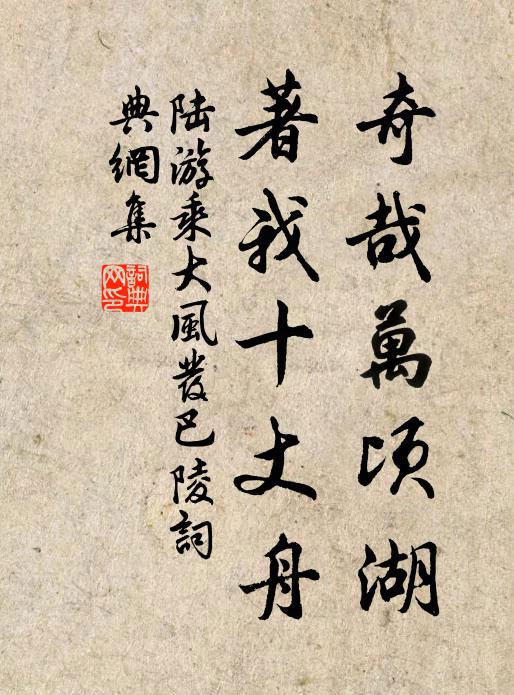 奇哉萬頃湖
著我十丈舟
陆游乘大風發巴陵詞
典網集
詞典網印